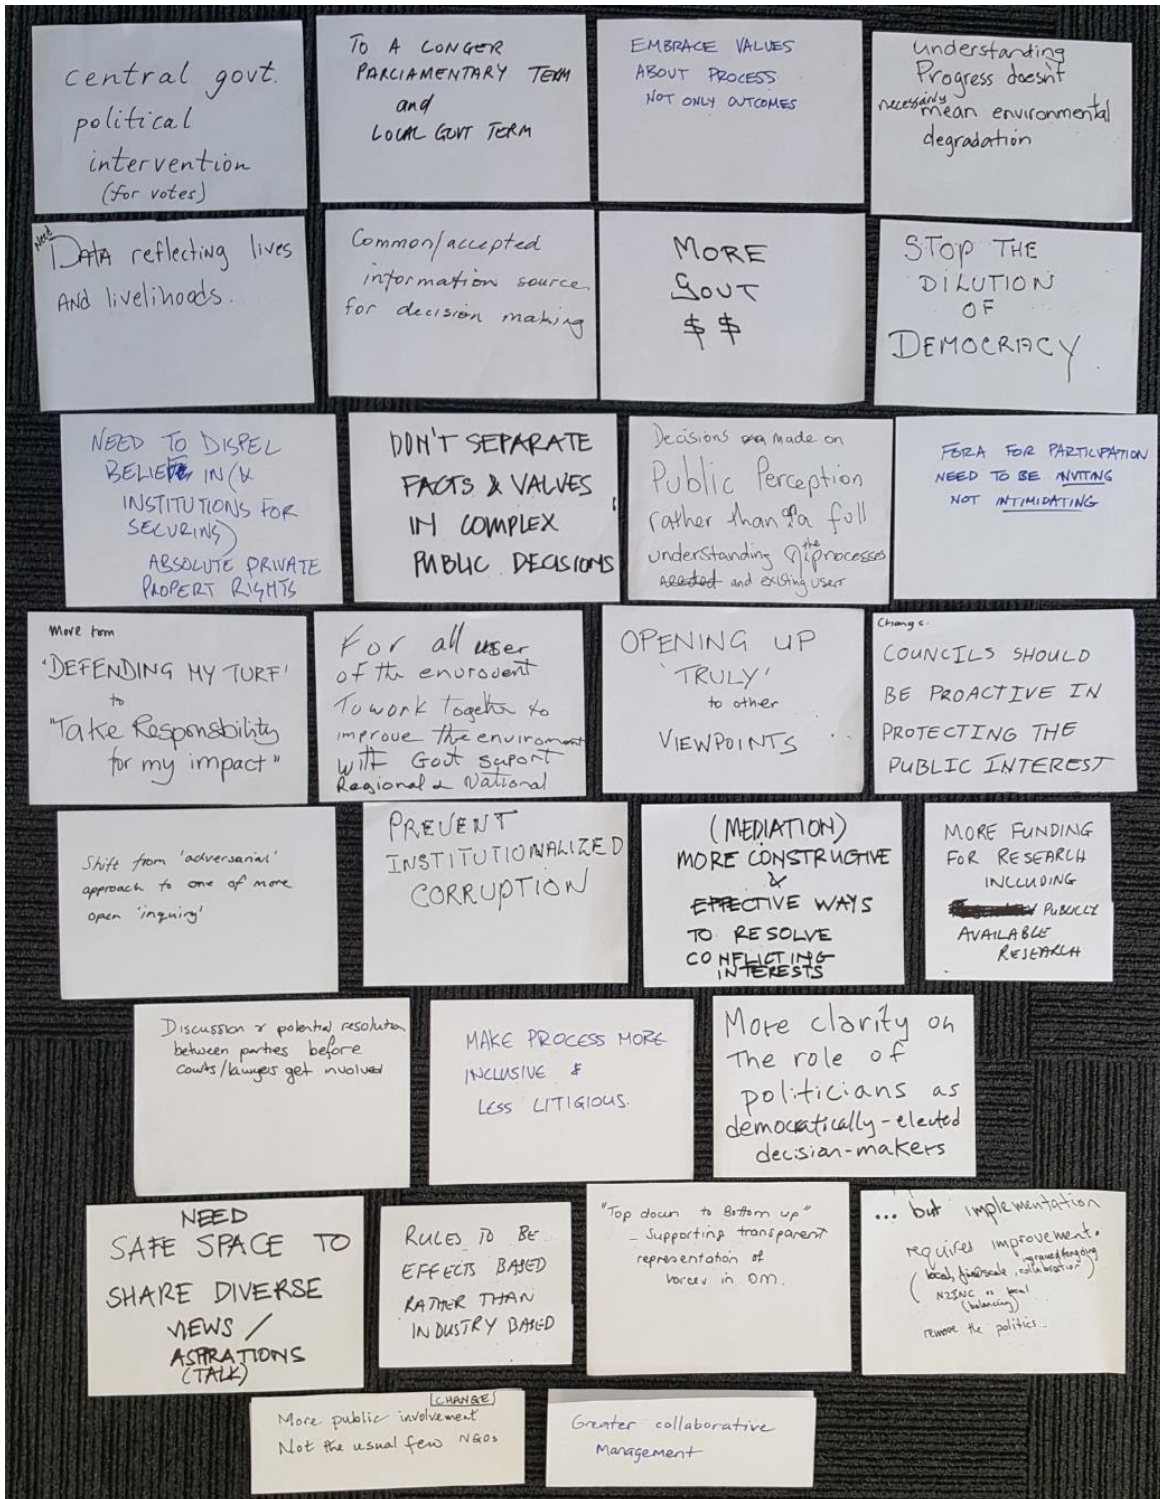 central govt.
political
intervention
(for votes)
TO A LONGER
PARLIAMENTARY TERM
and
LOCAL GOVT TERM
EMBRACE VALUES
ABOUT PROCESS
NOT ONLY OUTCOMES
Understanding
Progress doesn't
necessarily mean environmental
degradation
Need
DATA reflecting lives
AND livelihoods.
Common/accepted
information source
for decision making
MORE
GOVT
$ $
STOP THE
DILUTION
OF
DEMOCRACY
NEED TO DISPEL
BELIEF IN (&
INSTITUTIONS FOR
SECURING)
ABSOLUTE PRIVATE
PROPERT RIGHTS
DON'T SEPARATE
FACTS & VALUES
IN COMPLEX
PUBLIC DECISIONS
Decisions made on
Public Perception
rather than a full
understanding of the processes
and existing users
FORA FOR PARTICIPATION
NEED TO BE INVITING
NOT INTIMIDATING
Move from
'DEFENDING MY TURF'
to
"Take Responsbility
for my impact"
For all user
of the enurodent
To work Together to
improve the enviroment
with Govt suport
Regional & National
OPENING UP
'TRULY'
to other
VIEWPOINTS
Change.
COUNCILS SHOULD
BE PROACTIVE IN
PROTECTING THE
PUBLIC INTEREST
Shift from 'adversarial'
approach to one of more
open 'inquiry'
PREVENT
INSTITUTIONALIZED
CORRUPTION
(MEDIATION)
MORE CONSTRUCTIVE
&
EFFECTIVE WAYS
TO RESOLVE
CONFLICTING
INTERESTS
MORE FUNDING
FOR RESEARCH
INCLUDING
PUBLICLY
AVAILABLE
RESEARCH
Discussion & potential resolution
between parties before
courts/lawyers get involved
MAKE PROCESS MORE
INCLUSIVE &
LESS LITIGIOUS.
More clarity on
the role of
politicians as
democratically-elected
decision-makers
NEED
SAFE SPACE TO
SHARE DIVERSE
VIEWS /
ASPIRATIONS
(TALK)
RULES TO BE
EFFECTS BASED
RATHER THAN
INDUSTRY BASED
"Top down to Bottom up"
- Supporting transparent
representation of
voices in DM.
... but implementation
requires improvement.
(local, finescale, collaboration)
NZINC vs local
(balancing)
remove the politics...
[CHANGE]
More public involvement
Not the usual few NGOs
Greater collaborative
Management